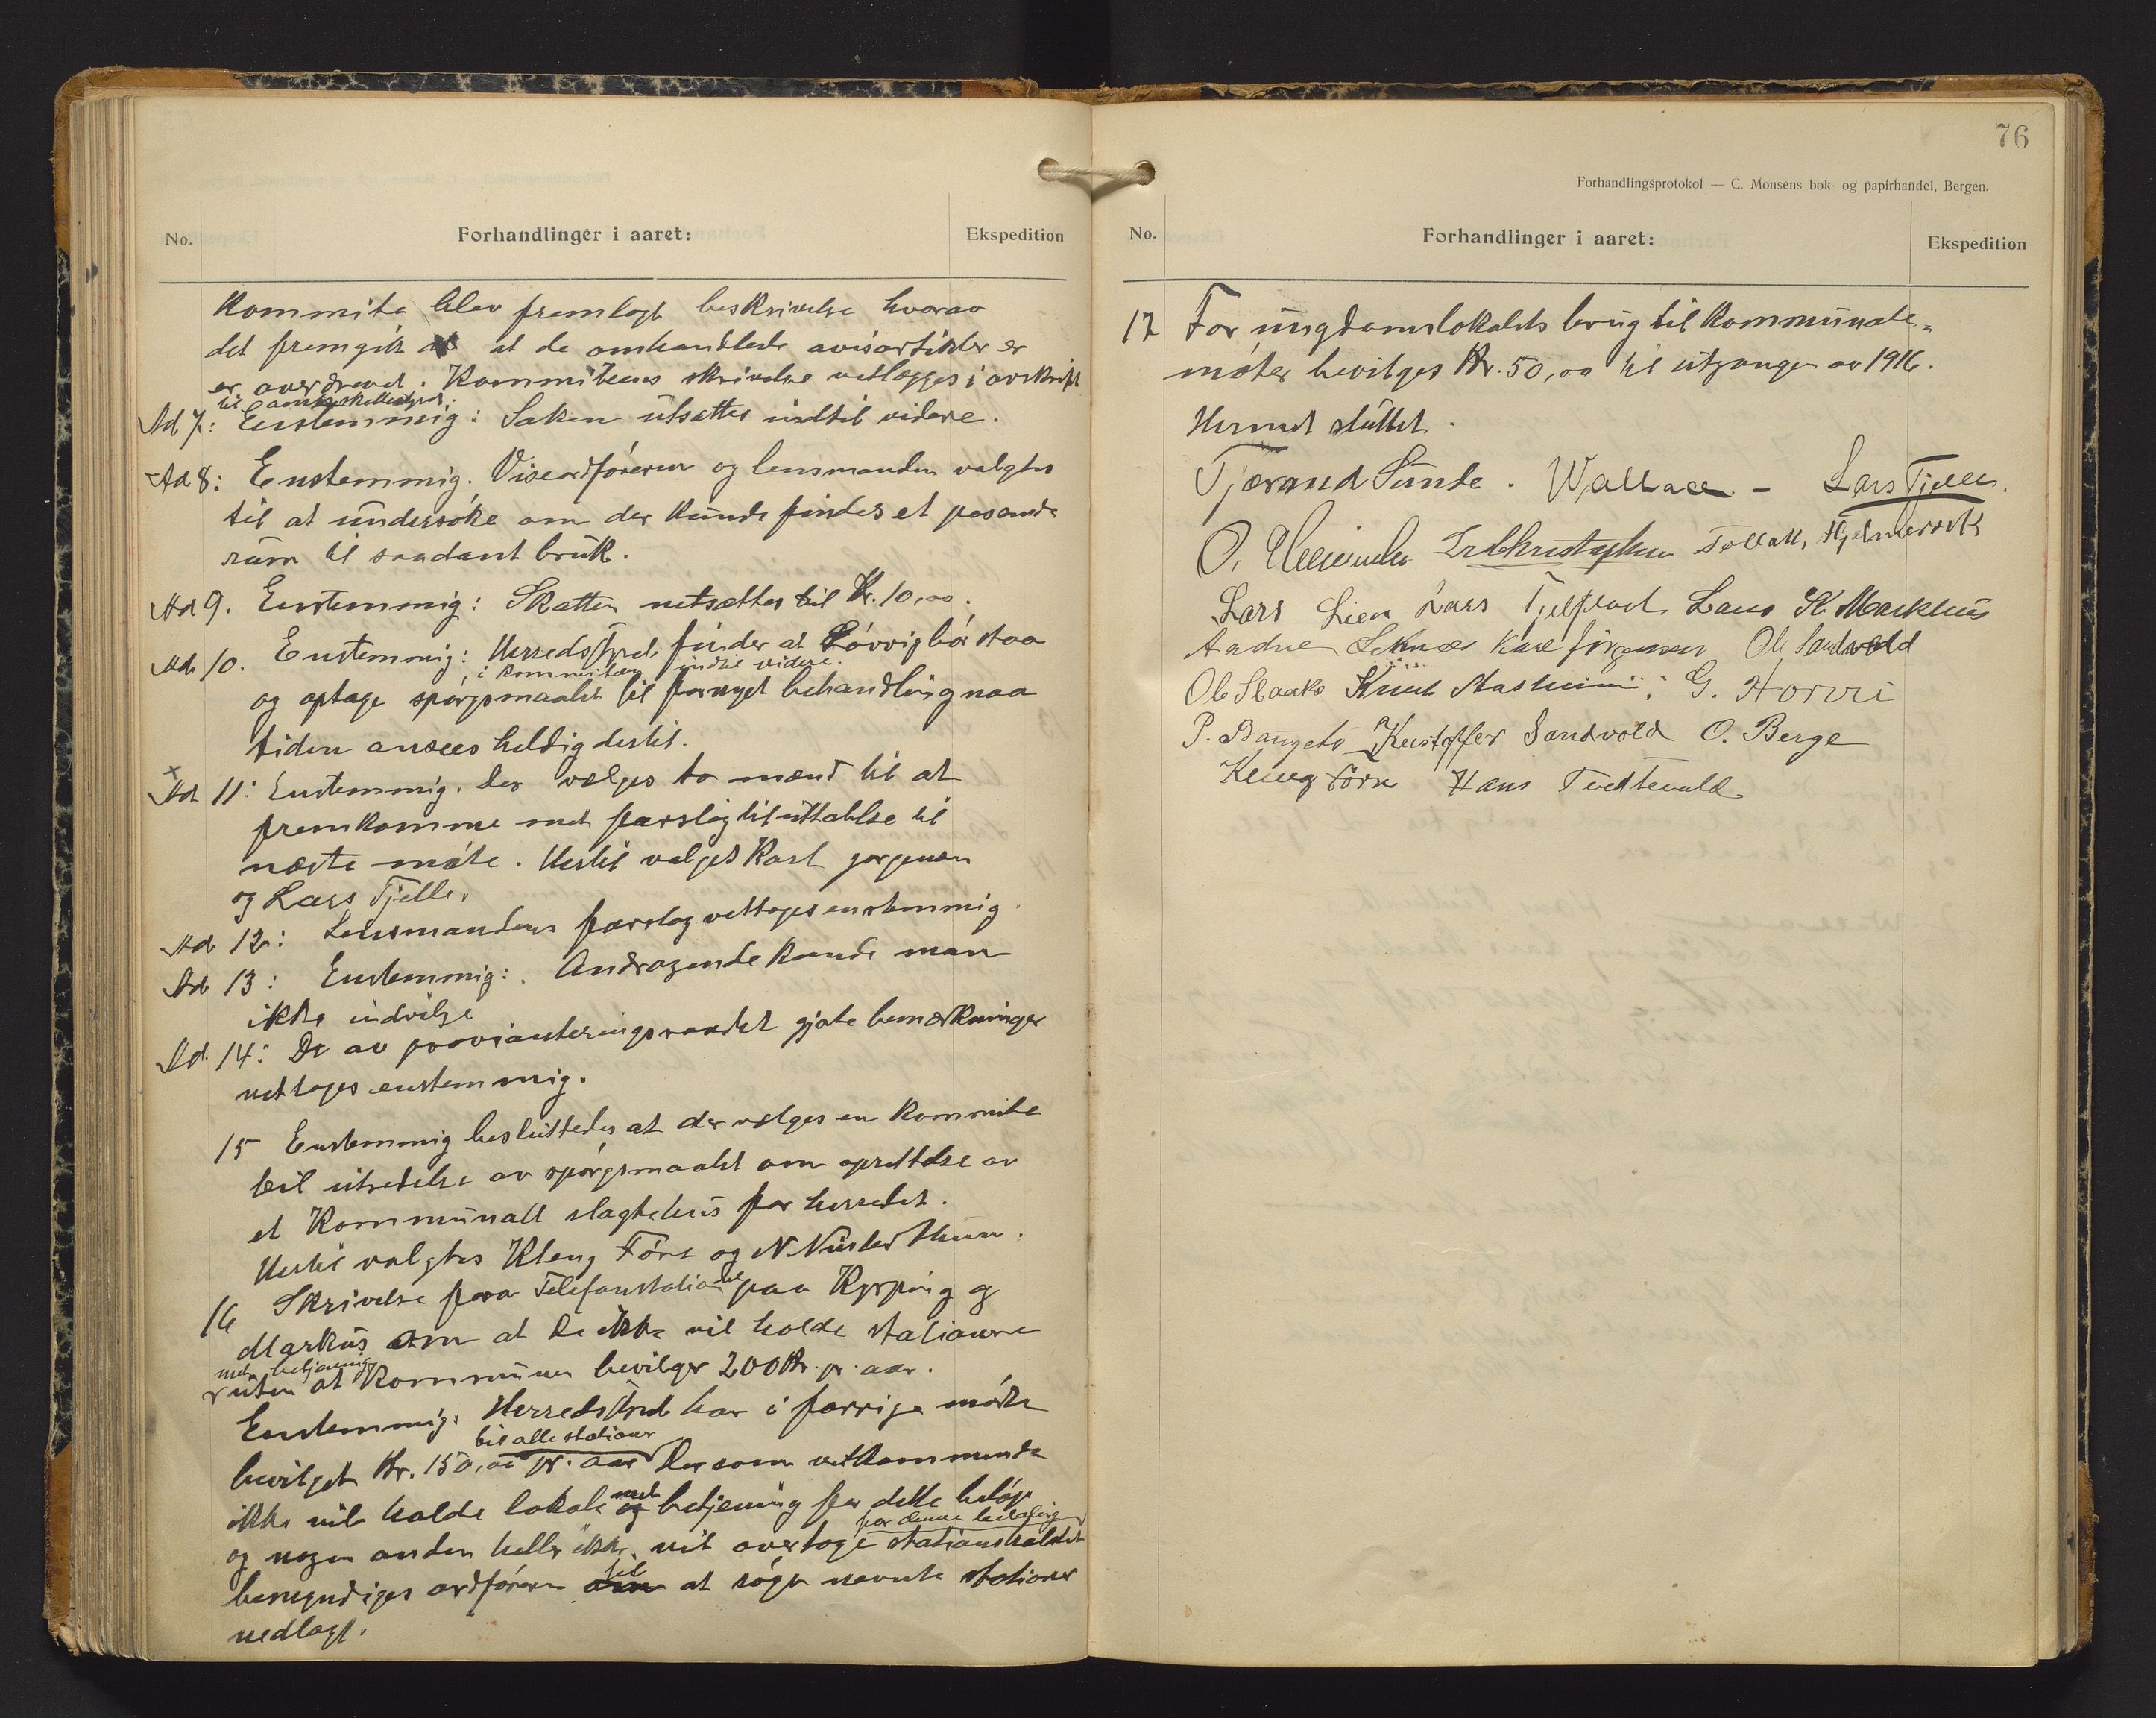 No.
Forhandlinger i aaret:
Ekspedition
Kommite blev fremlagt beskrivelse hvorav
det fremgik at de omhandlede avisartikler er
er overdrevet. Kommiteens skrivelse vedlægges i avskrift
til
Ad 7: Enstemmig: Saken utsættes indtil videre.
Ad 8: Enstemmig. Viseordföreren og lensmanden valgtes
til at undersöke om der kunde findes et pasende
rum til saadant bruk.
Ad 9. Enstemmig: Skatten netsættes til Kr. 10,00.
Ad 10. Enstemmig: Herredsstyret finder at Lövvig bör staa
i kommiteen indtil videre.
og optage spörgsmaalet til fornyet behandling naar
tiden ansees heldig dertil.
x
Ad 11: Enstemmig. Der vælges to mænd til at
fremkomme med forslag til uttalelse til
næste möte. Hertil valges Karl Jørgensen
og Lars Fjelle.
Ad 12: Lensmandens forslag vettoges enstemmig.
Ad 13: Enstemmig: Andragende kunde man
ikke indvilge
Ad 14: De av provianteringsraadet gjorte bemærkninger
vettoges enstemmig.
15 Enstemmig besluttedes at der vælges en Kommite
til utredelse av spörgsmaalet om oprettelse av
et Kommunalt slagtehus for herredet.
Hertil valgtes Kleng Före og N. Nusterthun.
16 Skrivelse fra Telefonstationene paa Kyrping og
Markus om at De ikke vil holde stationene
med betjening
uten at Kommunen bevilger 200 Kr. pr. aar.
Enstemmig: Herredsstyret har i forrige möte
til alle stationer
bevilget Kr. 150,00 pr. aar Dersom vetkommende
ikke vil holde lokale og med betjening for dette belöp
for denne betaling
og nogen anden heller ikke vil overtage stationsholdet
bemyndiges ordföreren om til at söge nevnte stationer
nedlagt.
76
Forhandlingsprotokol — C. Monsens bok- og papirhandel, Bergen.
No.
Forhandlinger i aaret:
Ekspedition
17 For ungdomslokalets brug til Kommunale-
möter bevilges Kr. 50,00 til utgangen av 1916.
Hermed sluttet.
Tjærand Sunde. Wallace – Lars Fjelle.
O. Tollak Hjelmervik
Lars Lien Lars Fjelstad Lars K. Markhus
Aadne Leknes Karl Jörgensen Ole Sandvold
Ole Staaks Knut G. Horvei
P. Kristoffer Sandvold O. Berge
Kleng Före Hans Tveitevold